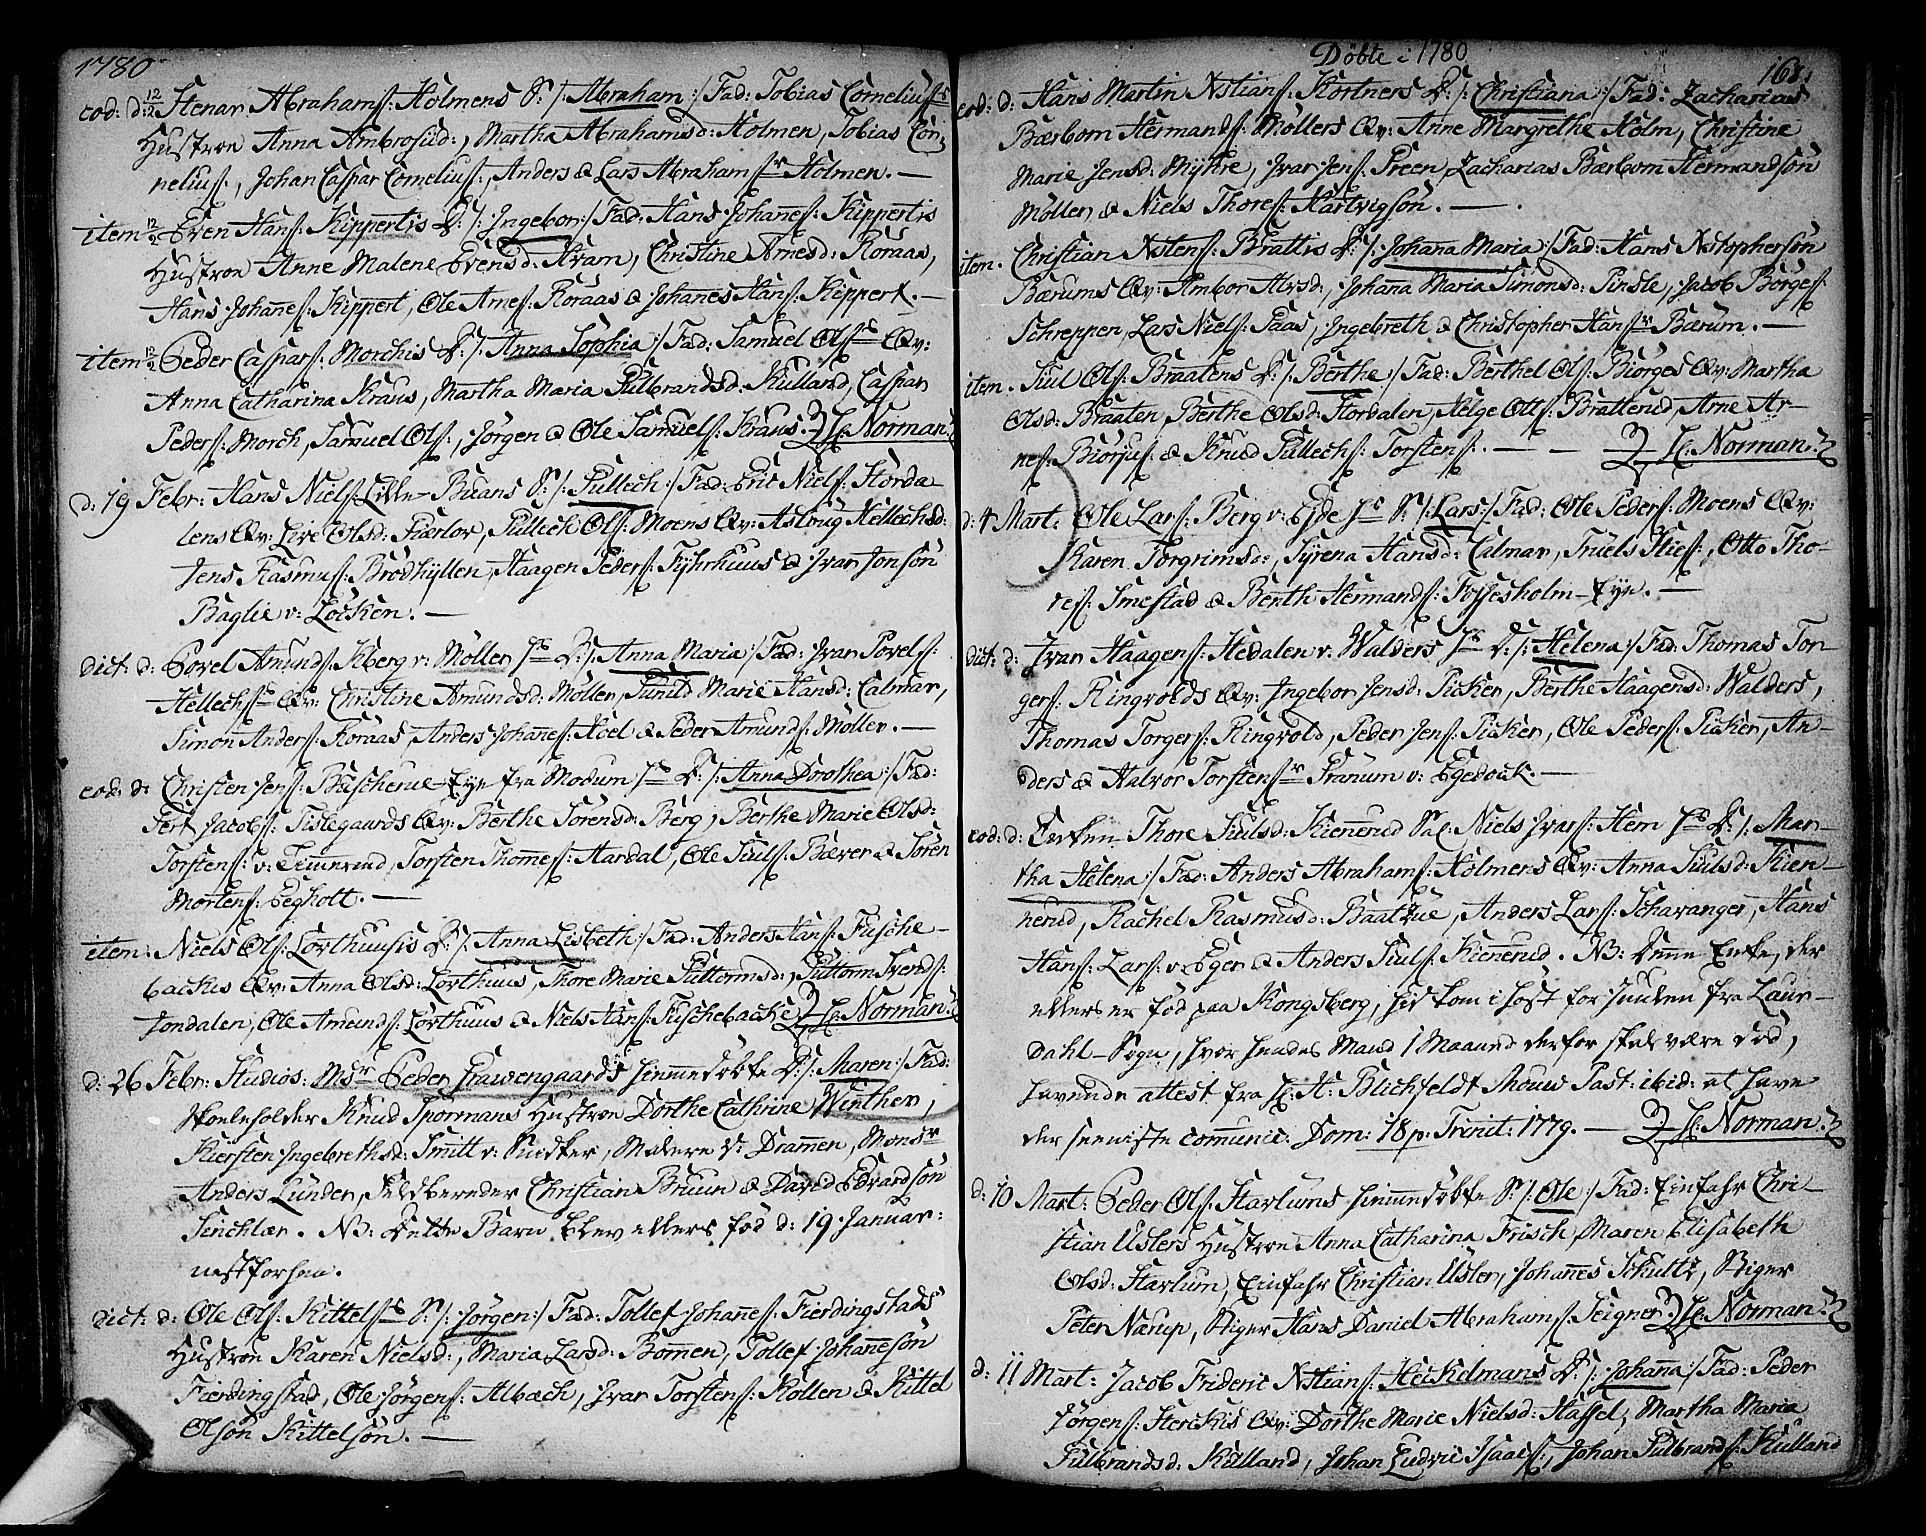 1780
eod: d: 12/2 Stenar Abrahams: Holmens S: /: Abraham :/ Fad: Tobias Cornelius:
Hustroe Anna Ambrosiid:, Martha Abrahamsd: Holmen, Tobias Cor-
nelius:, Johan Caspar Cornelius:, Anders & Lars Abrahams: Holmen. —
item 12/2 Even Hans: Kippertis D: /: Ingebor :/ Fad: Hans Johanes: Kippertis
Hustroe Anne Malene Evensd: Aram, Christine Arnesd: Koraas,
Hans Johanes: Kippert, Ole Arnes: Koraas & Johanes Hans: Kippert. —
item 12/2 Peder Caspars: Morchis D: /: Anna Sophia :/ Fad: Samuel Ols: Qv:
Anna Catharina Kraus, Martha Maria Gulbrandsd: Kulland, Caspar
Peders: Morch, Samuel Ols:, Jørgen & Ole Samuels: Kraus. H: Norman.
d: 19 Febr: Hans Niels: Lille-Buans S: /: Gullech :/ Fad: Eric Niels: Storda-
lens Qv: Live Olsd: Fiærlov, Gullech Ols: Moens Qv: Asloug Kellechsd:
Jens Rasmus: Brødhyllen, Haagen Peders: Fyhrhuus & Ivar Jonsøn
Baglie v: Løcken. —
dict: d: Povel Amunds: Kberg v: Møller D: /: Anna Maria :/ Fad: Ivar Povels:
Kellechs: Qv: Christine Amundsd: Møller, Gunild Marie Hansd: Calmar,
Simon Anders: Koraas, Anders Johanes: Hoel & Peder Amunds: Møller. —
eod: d: Christen Jens: Buscherue-Eye fra Modum D: /: Anna Dorothea :/ Fad:
Gert Jacobs: Tislegaards Qv: Berthe Sørensd: Berg, Berthe Marie Olsd:
Torstens: v: Timerud, Torsten Thomes: Aardal, Ole Juls: Bæver & Søren
Mortens: Egkolt. —
item: Niels Ols: Lorthuusis D: /: Anna Lisbeth :/ Fad: Anders Hans: Fusche-
backis Qv: Anna Olsd: Lorthuus, Thore Marie Guttormsd:, Guttorm Svends:
Jondalen, Ole Amunds: Lorthuus & Niels Hans: Fuschebacke. H: Norman.
d: 26 Febr: Studios: Msr Peder Frawengaards hiemmedøbte D: /: Maren :/ Fad:
Skoleholder Knud Spormans Hustroe Dorthe Cathrine Winther,
Kiersten Ingebrethsd: Smitt v:
Anders Lunder, Christian Bruun & David Edvardsøn
Sinchlær. NB: Dette Barn blev ellers fød d: 19 Januar:
nestforhen.
dict: d: Ole Ols: Kittels: S: /: Jørgen :/ Fad: Tollef Johanes: Fierdingstads
Hustroe Karen Nielsd:, Maria Larsd: Bomen, Tollef Johanesøn
Fierdingstad, Ole Jørgens: Albach, Ivar Torstens: Kollen & Kittel
Olsøn Kittelsøn. —
Døbte i 1780
168.
eod: d: Hans Martin Xstians: Kortners D: /: Christiana :/ Fad: Zacharias
Bærbom Hermands: Møllers Qv: Anne Margrethe Holm, Christine
Marie Jensd: Myhre, Ivar Jens: Preen, Zacharias Bærbom Hermandsøn
Møller & Niels Thores: Hartvigsøn. —
item. Christian Xstens: Brattis D: /: Johana Maria :/ Fad: Hans Xstophersøn
Bærums Qv: Ambor Alvsd:, Johana Maria Simonsd: Pinsle, Jacob Børges:
Schreppen, Lars Niels: Paas, Ingebreth & Christopher Hans: Bærum. —
item. Juul Ols: Braatens D: /: Berthe :/ Fad: Berthel Ols: Biørges Qv: Martha
Olsd: Braaten, Berthe Olsd: Stordalen, Helge Olls: Bratterud, Arne Ar-
nes: Biørjus: & Knud Gullechs: Torstens:. — — H: Norman.
d: 4 Mart: Ole Lars: Berg v: Eyde S: /: Lars :/ Fad: Ole Peders: Moens Qv:
Karen Torgrimsd:, Syrena Hansd: Calmar, Truels Sties:, Otto Tho-
res: Smestad & Berth Hermands: Fossesholm-Eye. —
dict: d: Ivar Haagens: Hedalen v: Walders D: /: Helena :/ Fad: Thomas Tor-
gers: Ringvolds Qv: Ingebor Jensd: Picker, Berthe Haagensd: Walders,
Thomas Torgers: Ringvold, Peder Jens: Picker, Ole Peders: Picker, An-
ders & Halvor Torstens: Franum v: Egedouk. —
eod: d: Enken Thore Juulsd: Kiennerud Sal: Niels Ivars: Hem D: /: Mar-
tha Helena :/ Fad: Anders Abrahams: Holmens Qv: Anna Juulsd: Kien-
nerud, Rachel Rasmusd: Baatzue, Anders Lars: Schavanger, Hans
Hans: Lars: v: Eger & Anders Juuls: Kienerud. NB: Denne Enke, der
ellers er fød paa Kongsberg, hid kom i Høst for Juulen fra Laur-
dahl-Sogn, hvor hendes Mand 1 Maaned derfor skal være død,
havende attest fra H: H: Blichfeldt Past: ibid: at have
der seeniste comunic: Dom: 18 p: Trinit: 1779. — H: Norman.
d: 10 Mart: Peder Ols: Starlums hiemmedøbte S: /: Ole :/ Fad: Einfahr Chri-
stian Uslers Hustroe Anna Catharina Frisch, Maren Elisabeth
Olsd: Starlum, Einfahr Christian Usler, Johannes Schultz, Stiger
Peter Nærup, Stiger Hans Daniel Abrahams: Seigner. H: Norman.
d: 11 Mart: Jacob Frideric Xstians: Heckelmans D: /: Johana :/ Fad: Peder
Jørgens: Sterckis Qv: Dorthe Marie Nielsd: Hassel, Martha Maria
Gulbrandsd: Kulland, Johan Ludvic Isaacs:, Johan Gulbrands: Kulland